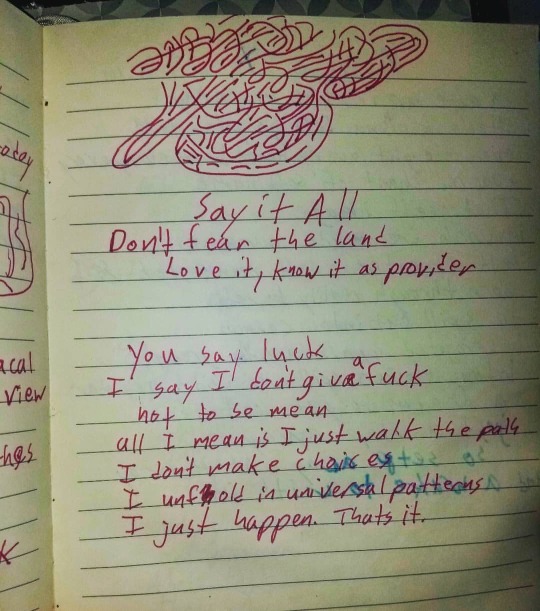 Say it All
Don't fear the land
Love it, know it as provider
You say luck
I say I don't give a fuck
not to be mean
all I mean is I just walk the path
I don't make choices
I unfold in universal patterns
I just happen. Thats it.
oday
acal
view